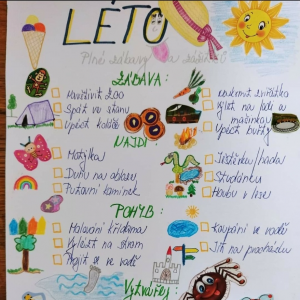 LÉTO
Plné zábavy a zážitků
ZÁBAVA:
Navštívit ZOO
Spát ve stanu
Upéct koláče
Nakrmit zvířátka
Výlet na lodi a
mašinkou
Upéct buřty
NAJDI:
Motýlka
Duhu na obloze
Putovní kamínek
Ještěrku/hada
Studánku
Houbu v lese
POHYB:
Malování křídama
Vylézt na strom
Projít se ve vodě
Koupání ve vodě
Jít na procházku
Vytvářej: